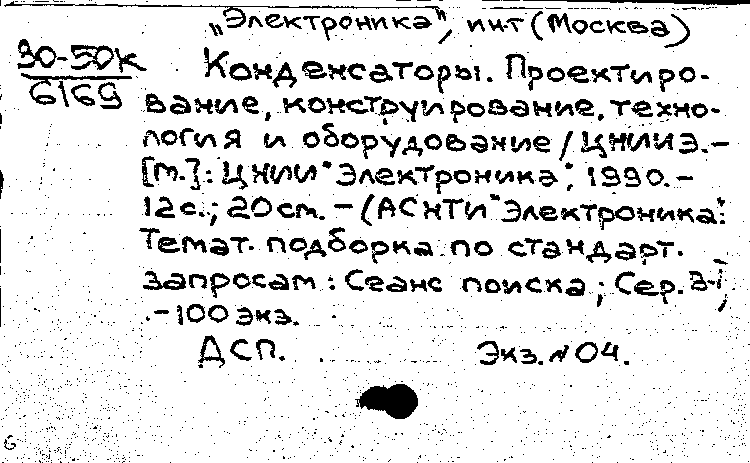 „Электроника“, ин-т (Москва)
90-50К
6169
Конденсаторы. Проектиро-
вание, конструирование, техно-
логия и оборудование / ЦНИИЭ.-
[М.]: ЦНИИ "Электроника", 1990.-
12с.; 20см. - (АСНТИ "Электроника":
Темат. подборка по стандарт.
запросам: Сеанс поиска; Сер.
.-100 экз.
ДСП. Экз. N 04.
6